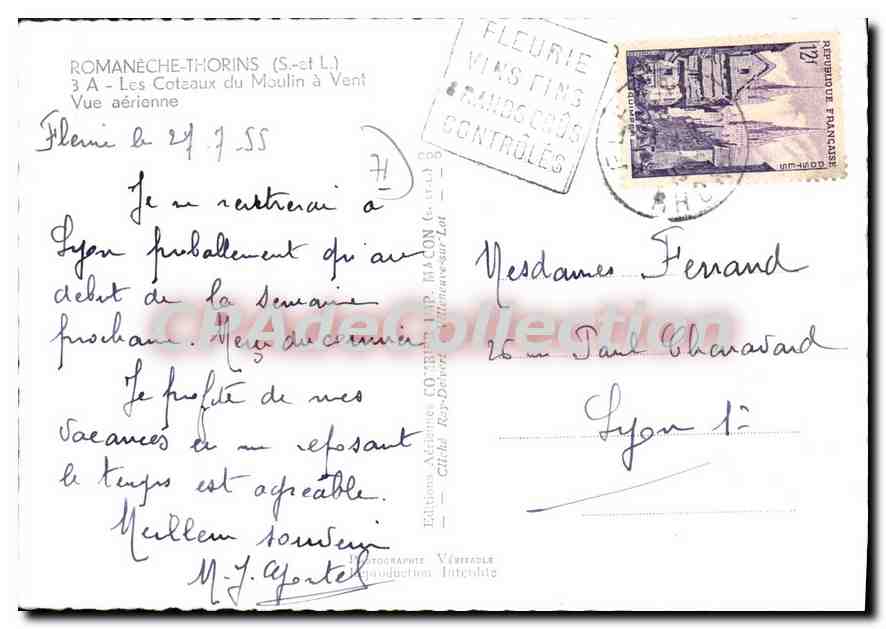 ROMANÈCHE-THORINS (S.-et L.)
3 A - Les Coteaux du Moulin à Vent
Vue aérienne
Fleurie le 27.7.55
Je ne rentrerai à
Lyon probablement qu'au
début de la semaine
prochaine. Merci du courrier
Je profite de mes
vacances en me reposant
le temps est agréable.
Meilleur souvenir
M.J.
Editions Aériennes COMBIER IMP. MACON (S.-et-L.)
Cliché Ray-Delvert Villeneuve-sur-Lot
PHOTOGRAPHIE VÉRITABLE
Reproduction Interdite
FLEURIE
VINS FINS
GRANDS CRUS
CONTRÔLÉS
RHONE
12F
REPUBLIQUE FRANÇAISE
POSTES
QUIMPER
Mesdames Ferrand
26 rue Paul Chenavard
Lyon 1er
CPAdeCollection.com